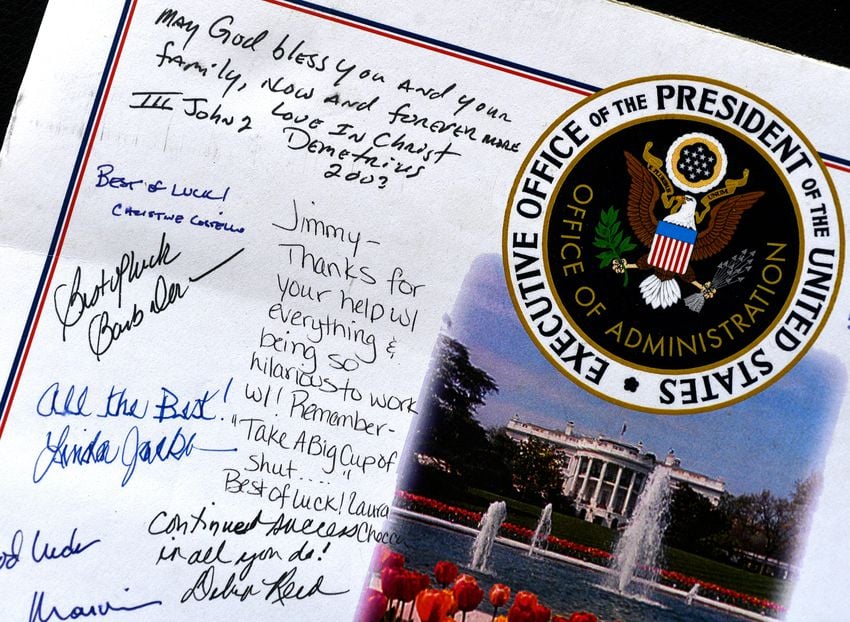 MAY GOD bless you AND your
family, NOW AND forever more
LOVE IN Christ
III John 2
Demetrius
2003
EXECUTIVE OFFICE OF THE PRESIDENT OF THE UNITED STATES
OFFICE OF ADMINISTRATION
BEST OF LUCK!
CHRISTINE COSTELLO
Best of luck
Barb
All the Best!
Linda
Jimmy-
Thanks for
your help w/
everything &
being so
hilarious to work
w/! Remember-
"Take A Big Cup of
shut....."
Best of luck! Laura
Continued success
in all you do!
Debra Reed
Marvin